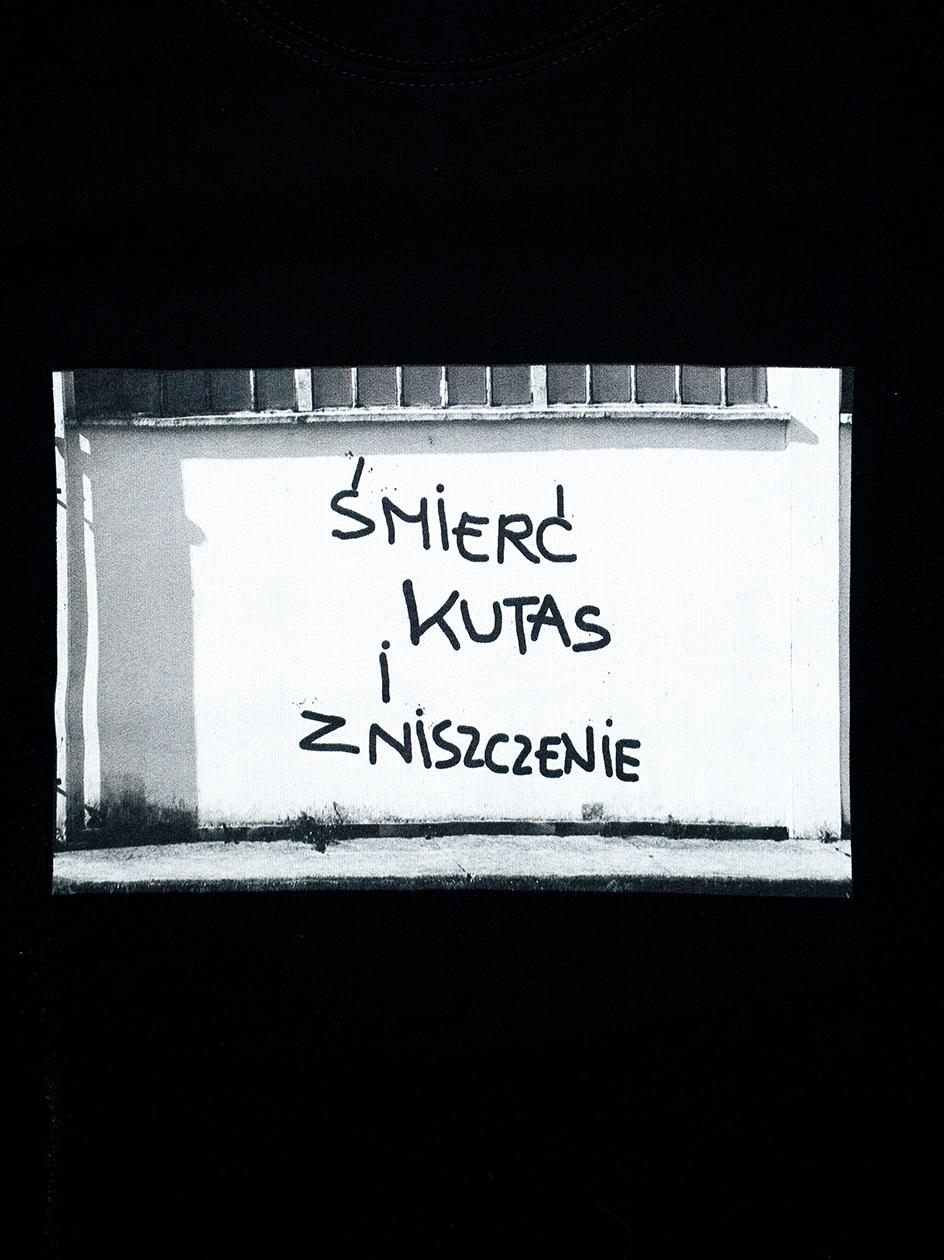 ŚMIERĆ
KUTAS
i
ZNiSZCZENiE